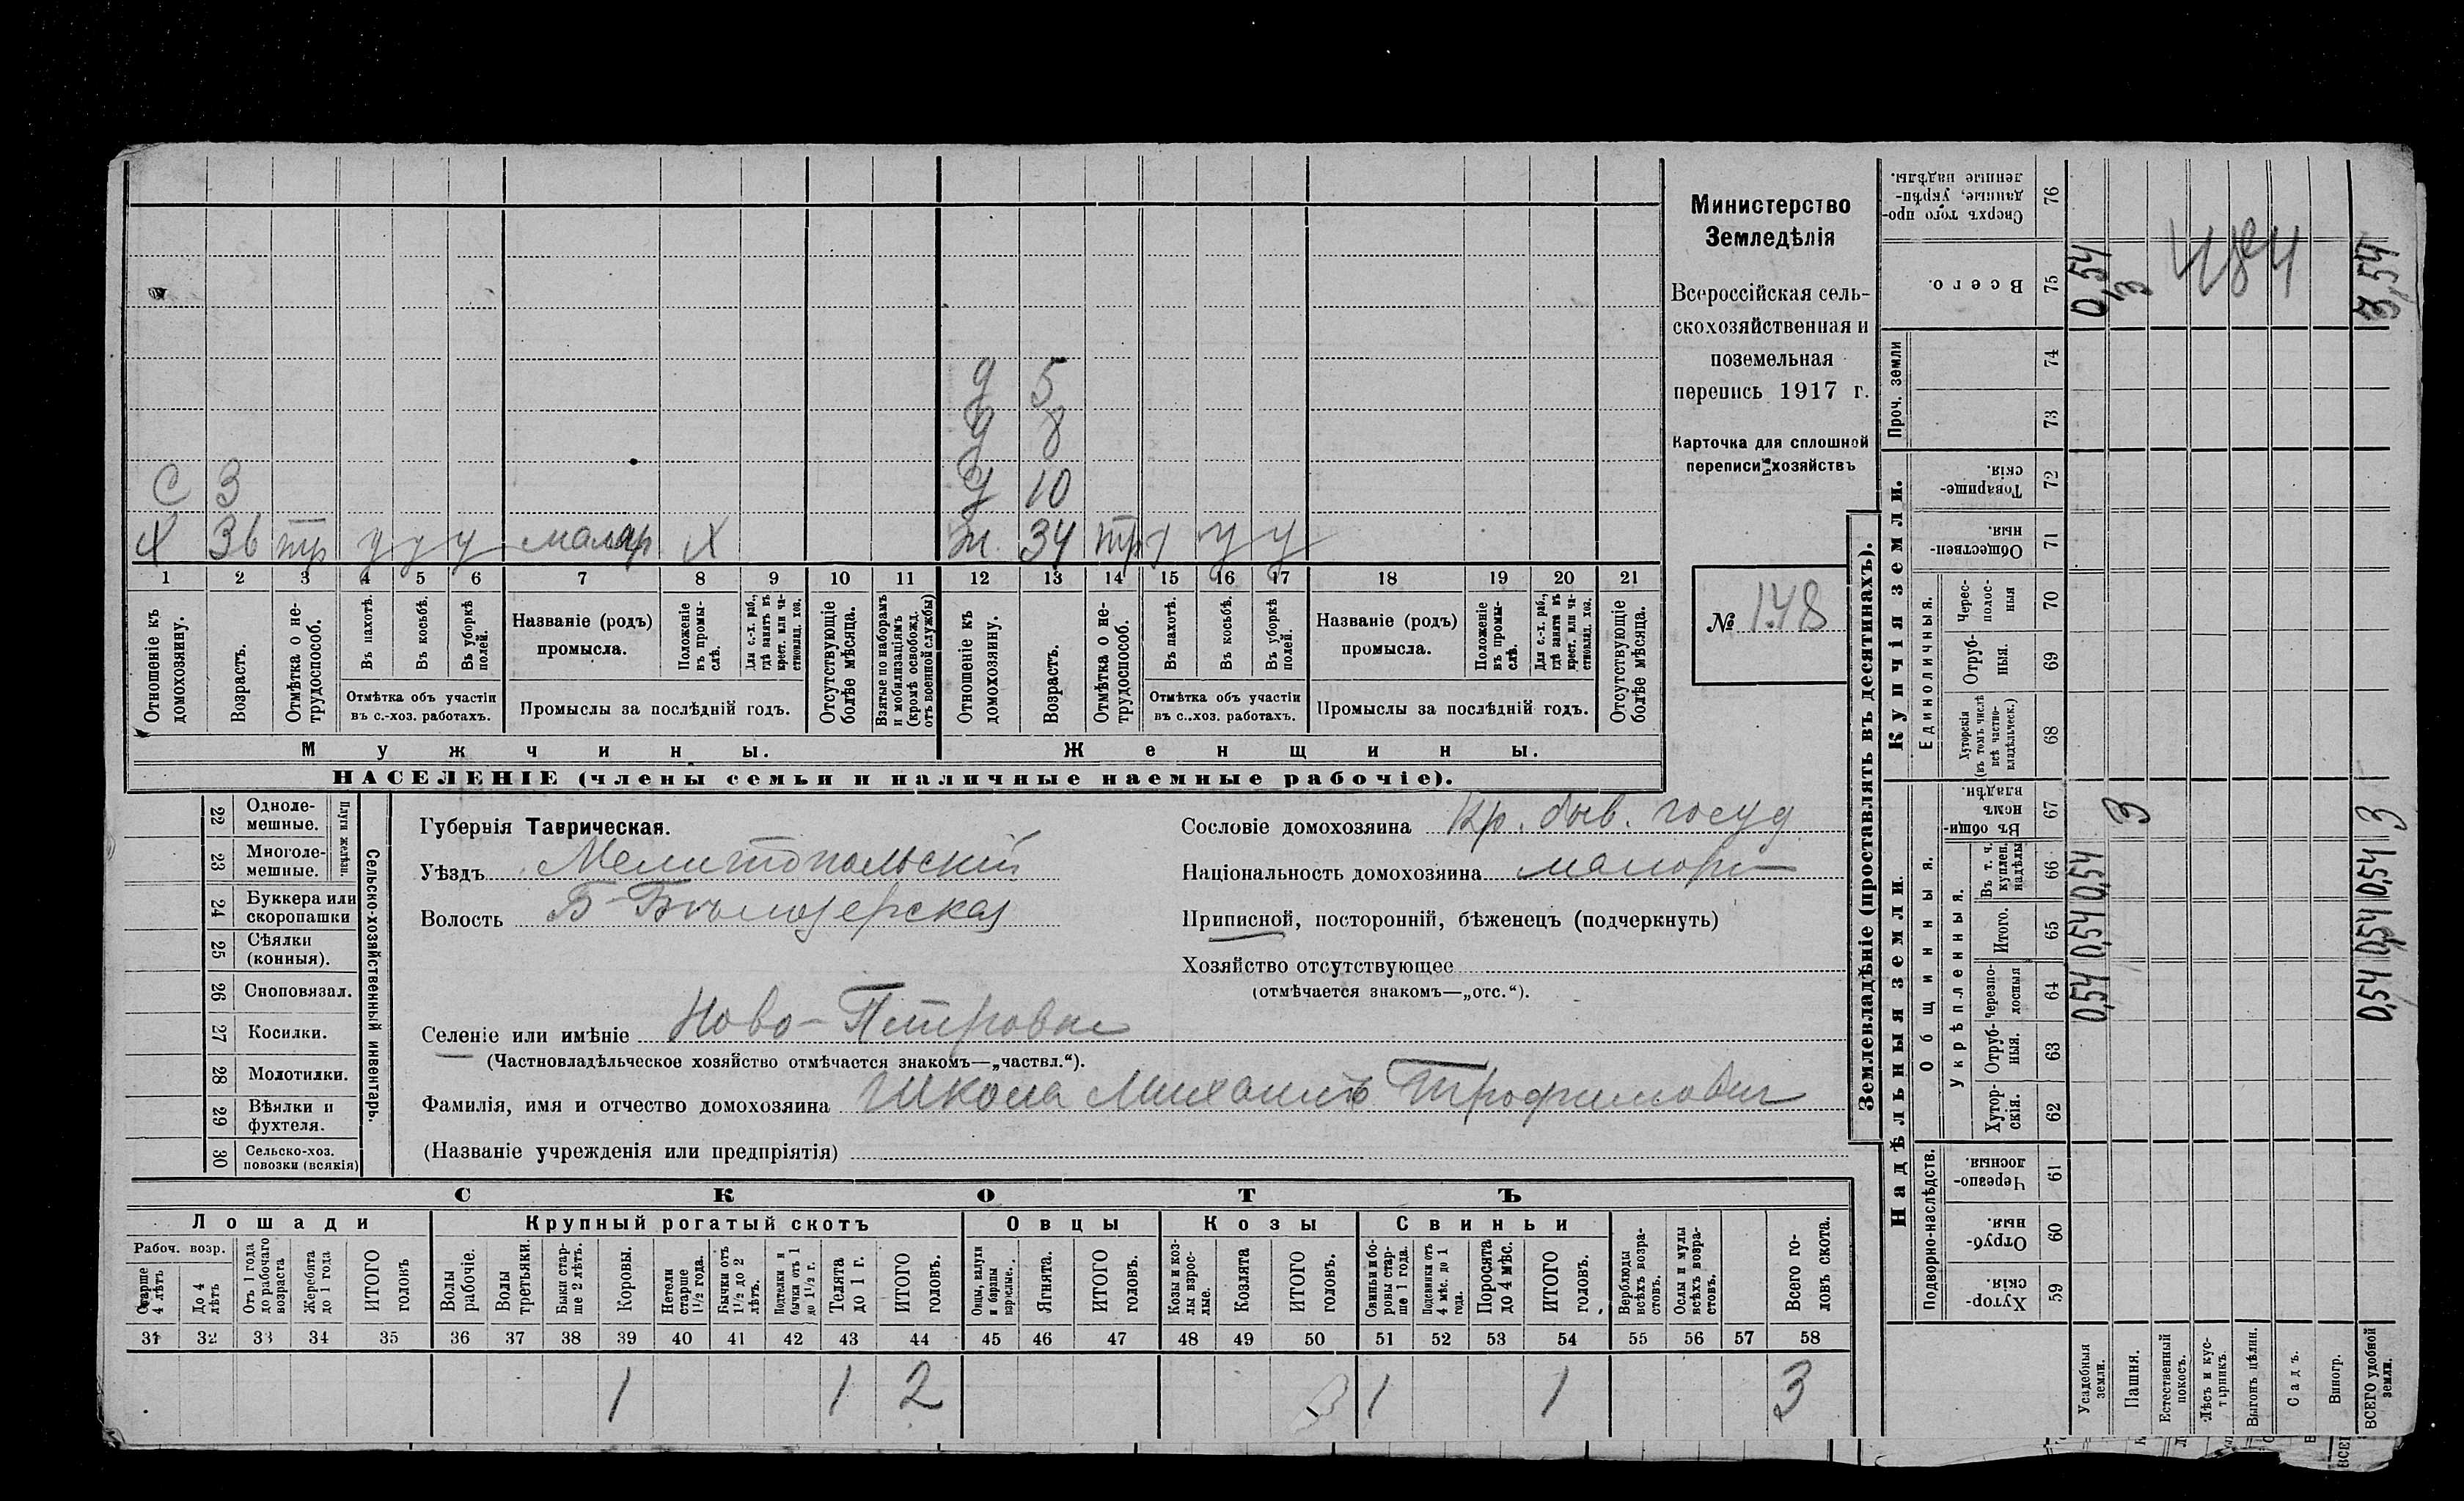 Министерство
Земледѣлія
Всероссійская сель-
скохозяйственная и
поземельная
перепись 1917 г.
Карточка для сплошной
переписи хозяйствъ
№ 148
д 5
д 8
С 3 д 10
Х 36 тр у у у маляр Х ж. 34 тр у у у
1 2 3 4 5 6 7 8 9 10 11 12 13 14 15 16 17 18 19 20 21
Отношеніе къ домохозяину.
Возрастъ.
Отмѣтка о не-трудоспособ.
Въ пахотѣ.
Въ косьбѣ.
Въ уборкѣ полей.
Отмѣтка объ участіи
въ с.-хоз. работахъ.
Названіе (родъ)
промысла.
Положеніе въ промы-слѣ.
Для с.-х. раб., гдѣ занятъ въ крест. или ча-стновлад. хоз.
Промыслы за послѣдній годъ.
Отсутствующіе болѣе мѣсяца.
Взятые по наборамъ и мобилизаціямъ (кромѣ освобожд. отъ военной службы)
Отношеніе къ домохозяину.
Возрастъ.
Отмѣтка о не-трудоспособ.
Въ пахотѣ.
Въ косьбѣ.
Въ уборкѣ полей.
Отмѣтка объ участіи
въ с..хоз. работахъ.
Названіе (родъ)
промысла.
Положеніе въ промы-слѣ.
Для с.-х. раб., гдѣ занята въ крест. или ча-стновлад. хоз.
Промыслы за послѣдній годъ.
Отсутствующіе болѣе мѣсяца.
Мужчины.
Женщины.
НАСЕЛЕНІЕ (члены семьи и наличные наемные рабочіе).
Сельско-хозяйственный инвентарь.
Плуги желѣзн.
22 Одноле-мешные.
23 Многоле-мешные.
24 Буккера или скоропашки
25 Сѣялки (конныя).
26 Сноповязал.
27 Косилки.
28 Молотилки.
29 Вѣялки и фухтеля.
30 Сельско-хоз. повозки (всякія)
Губернія Таврическая.
Уѣздъ Мелитопольскій
Волость Б-Бѣлозерская
Сословіе домохозяина Кр. быв. госуд
Національность домохозяина малорс
Приписной, посторонній, бѣженецъ (подчеркнуть)
Хозяйство отсутствующее
(отмѣчается знакомъ—„отс.“).
Селеніе или имѣніе Ново-Петровка
(Частновладѣльческое хозяйство отмѣчается знакомъ—„частвл.“).
Фамилія, имя и отчество домохозяина Школа Михаилъ Трофимович
(Названіе учрежденія или предпріятія)
СКОТЪ
Лошади
Крупный рогатый скотъ
Овцы
Козы
Свиньи
Рабоч. возр.
Старше 4 лѣтъ
До 4 лѣтъ
Отъ 1 года до рабочаго возраста
Жеребята до 1 года
ИТОГО головъ
Волы рабочіе.
Волы третьяки.
Быки стар-ше 2 лѣтъ.
Коровы.
Нетели старше 1½ года.
Бычки отъ 1½ до 2 лѣтъ.
Подтелки и бычки отъ 1 до 1½ г.
Телята до 1 г.
ИТОГО головъ.
Овцы, валухи и бараны взрослые.
Ягнята.
ИТОГО головъ.
Козы и коз-лы взрос-лые.
Козлята
ИТОГО головъ.
Свиньи и бо-ровы стар-ше 1 года.
Подсвинки отъ 4 мѣс. до 1 года.
Поросята до 4 мѣс.
ИТОГО головъ.
Верблюды всѣхъ возра-стовъ.
Ослы и мулы всѣхъ возра-стовъ.
Всего го-ловъ скота.
31 32 33 34 35 36 37 38 39 40 41 42 43 44 45 46 47 48 49 50 51 52 53 54 55 56 57 58
1 1 2 1 1 3
Землевладѣніе (проставлять въ десятинахъ).
Надѣльныя земли.
Купчія земли.
Проч. земли
Подворно-наслѣдств.
Общинныя.
Укрѣпленныя.
Единоличныя.
Хутор-скія. 59
Отруб-ныя. 60
Черезпо-лосныя. 61
Хутор-скія. 62
Отруб-ныя. 63
Черезпо-лосныя 64
Итого. 65
Въ т. ч. куплен. надѣлы 66
Въ общи-номъ владѣн. 67
Хуторскія (въ томъ числѣ всѣ частно-владѣльческ.) 68
Отруб-ныя. 69
Черес-полос-ныя 70
Обществен-ныя. 71
Товарище-скія. 72
73
74
Всего. 75
Сверхъ того про-данные, укрѣп-ленные надѣлы. 76
Усадебныя земли. 0,54 0,54 0,54 0,54
Пашня. 3 3
Естественный покосъ.
Лѣсъ и кус-тарникъ.
Выгонъ цѣлин.
Садъ.
Виногр.
ВСЕГО удобной земли. 0,54 0,54 0,54 3 3,54
484